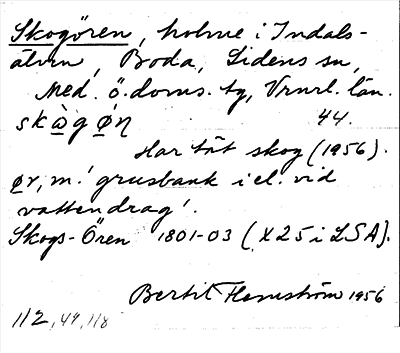 Skogören, holme i Indals-
älven, Boda, Lidens sn,
Med. ö. doms. tg, Vrnrl. län.
skὼg ǿn 44.
Har tät skog (1956).
ør, m. 'grusbank i el. vid
vattendrag'.
Skogs-Ören 1801-03 (X25 i LSA).
Bertil Flemström 1956
112, 44, 118